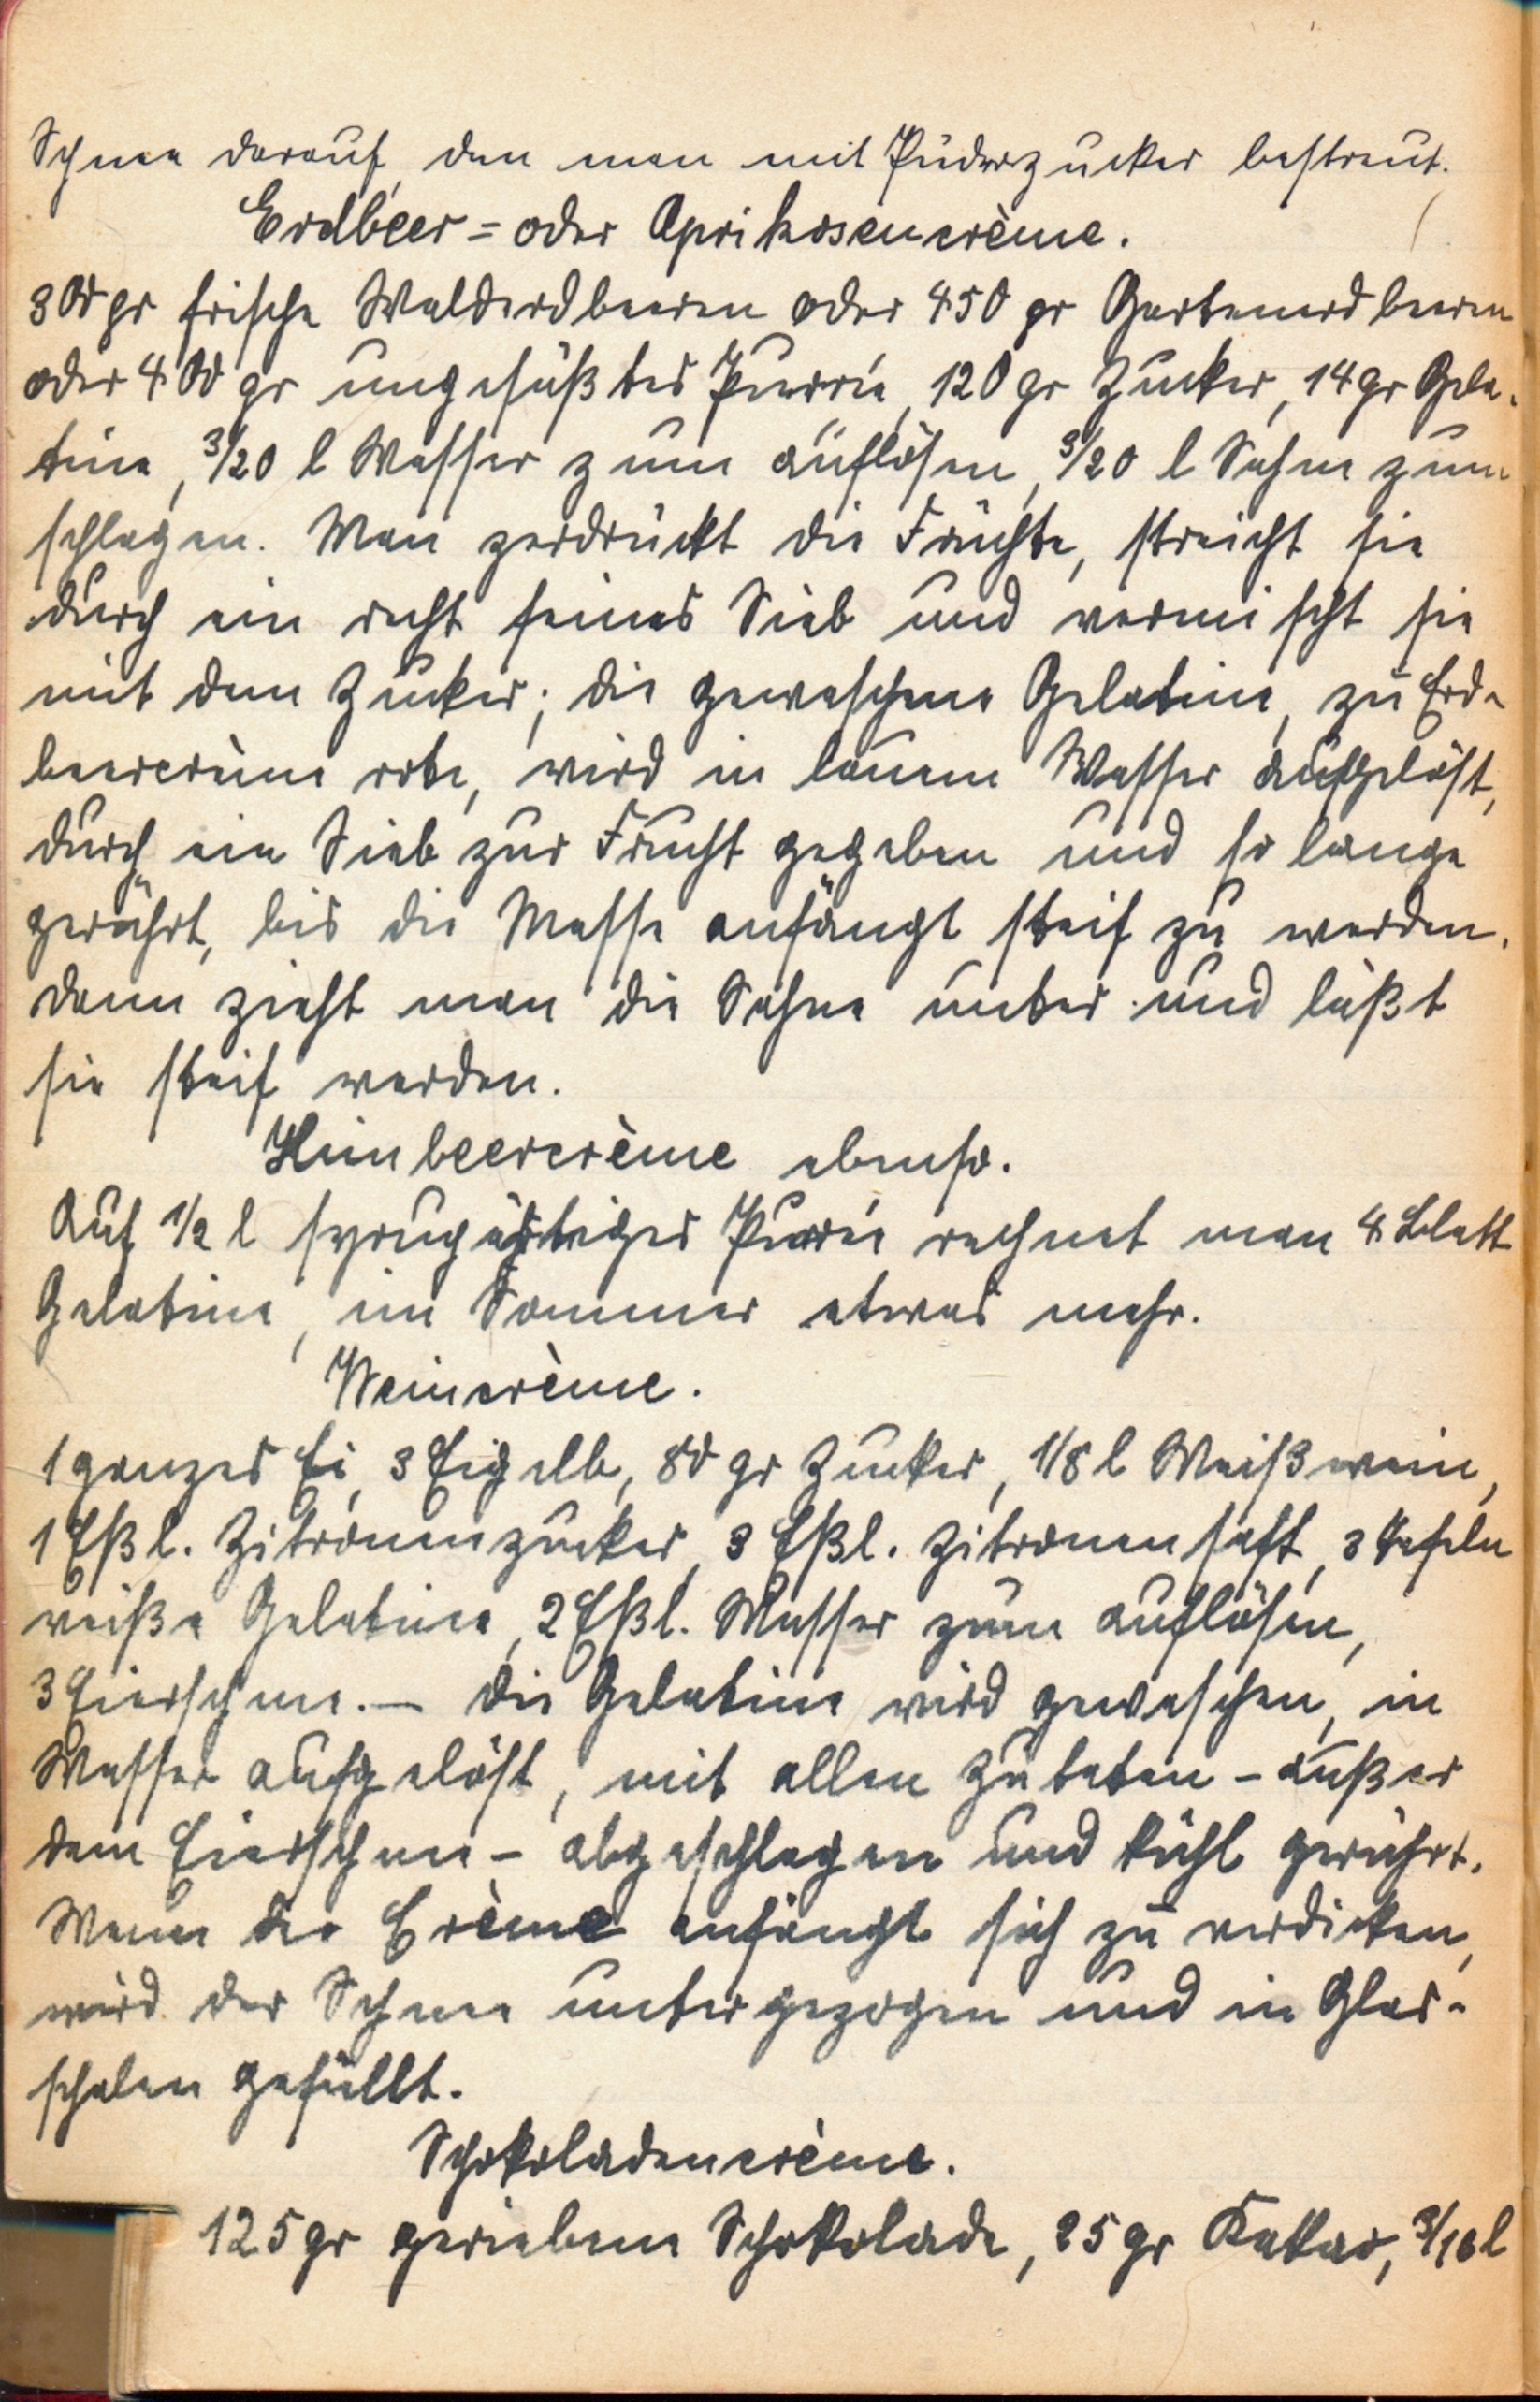 Schnee darauf, den man mit Puderzucker bestreut.
Erdbeer= oder Aprikosencrème.
300 gr frische Walderdbeeren oder 450 gr Gartenerdbeeren
oder 400 gr ungesüßtes Purrée, 120 gr Zucker, 14 gr Gela-
tine, 3/20 l Wasser zum auflösen, 3/20 l Sahne zum
schlagen. Man zerdrückt die Früchte, streicht sie
durch ein recht feines Sieb und vermischt sie
mit dem Zucker; die gewaschene Gelatine, zu Erd-
beercrème rote, wird in lauem Wasser aufgelöst,
durch ein Sieb zur Frucht gegeben und so lange
gerührt, bis die Masse anfängt steif zu werden.
dann zieht man die Sahne unter und läßt
sie steif werden.
Himbeercrème ebenso.
Auf 1/2 l syrupartiges Purrée rechnet man 4 Blatt
Gelatine, im Sommer etwas mehr.
Weincrème.
1 ganzes Ei, 3 Eigelb, 80 gr Zucker, 1/8 l Weißwein,
1 Eßl. Zitronenzucker, 3 Eßl. Zitronensaft, 3 Tafeln
weiße Gelatine, 2 Eßl. Wasser zum auflösen,
3 Eierschnee. — Die Gelatine wird gewaschen, in
Wasser aufgelöst, mit allen Zutaten - außer
dem Eierschnee - abgeschlagen und kühl gerührt.
Wenn die Crème anfängt sich zu verdicken,
wird der Schnee untergezogen und in Glas-
schalen gefüllt.
Schokoladencrème.
125 gr geriebene Schokolade, 25 gr Kakao, 3/10 l